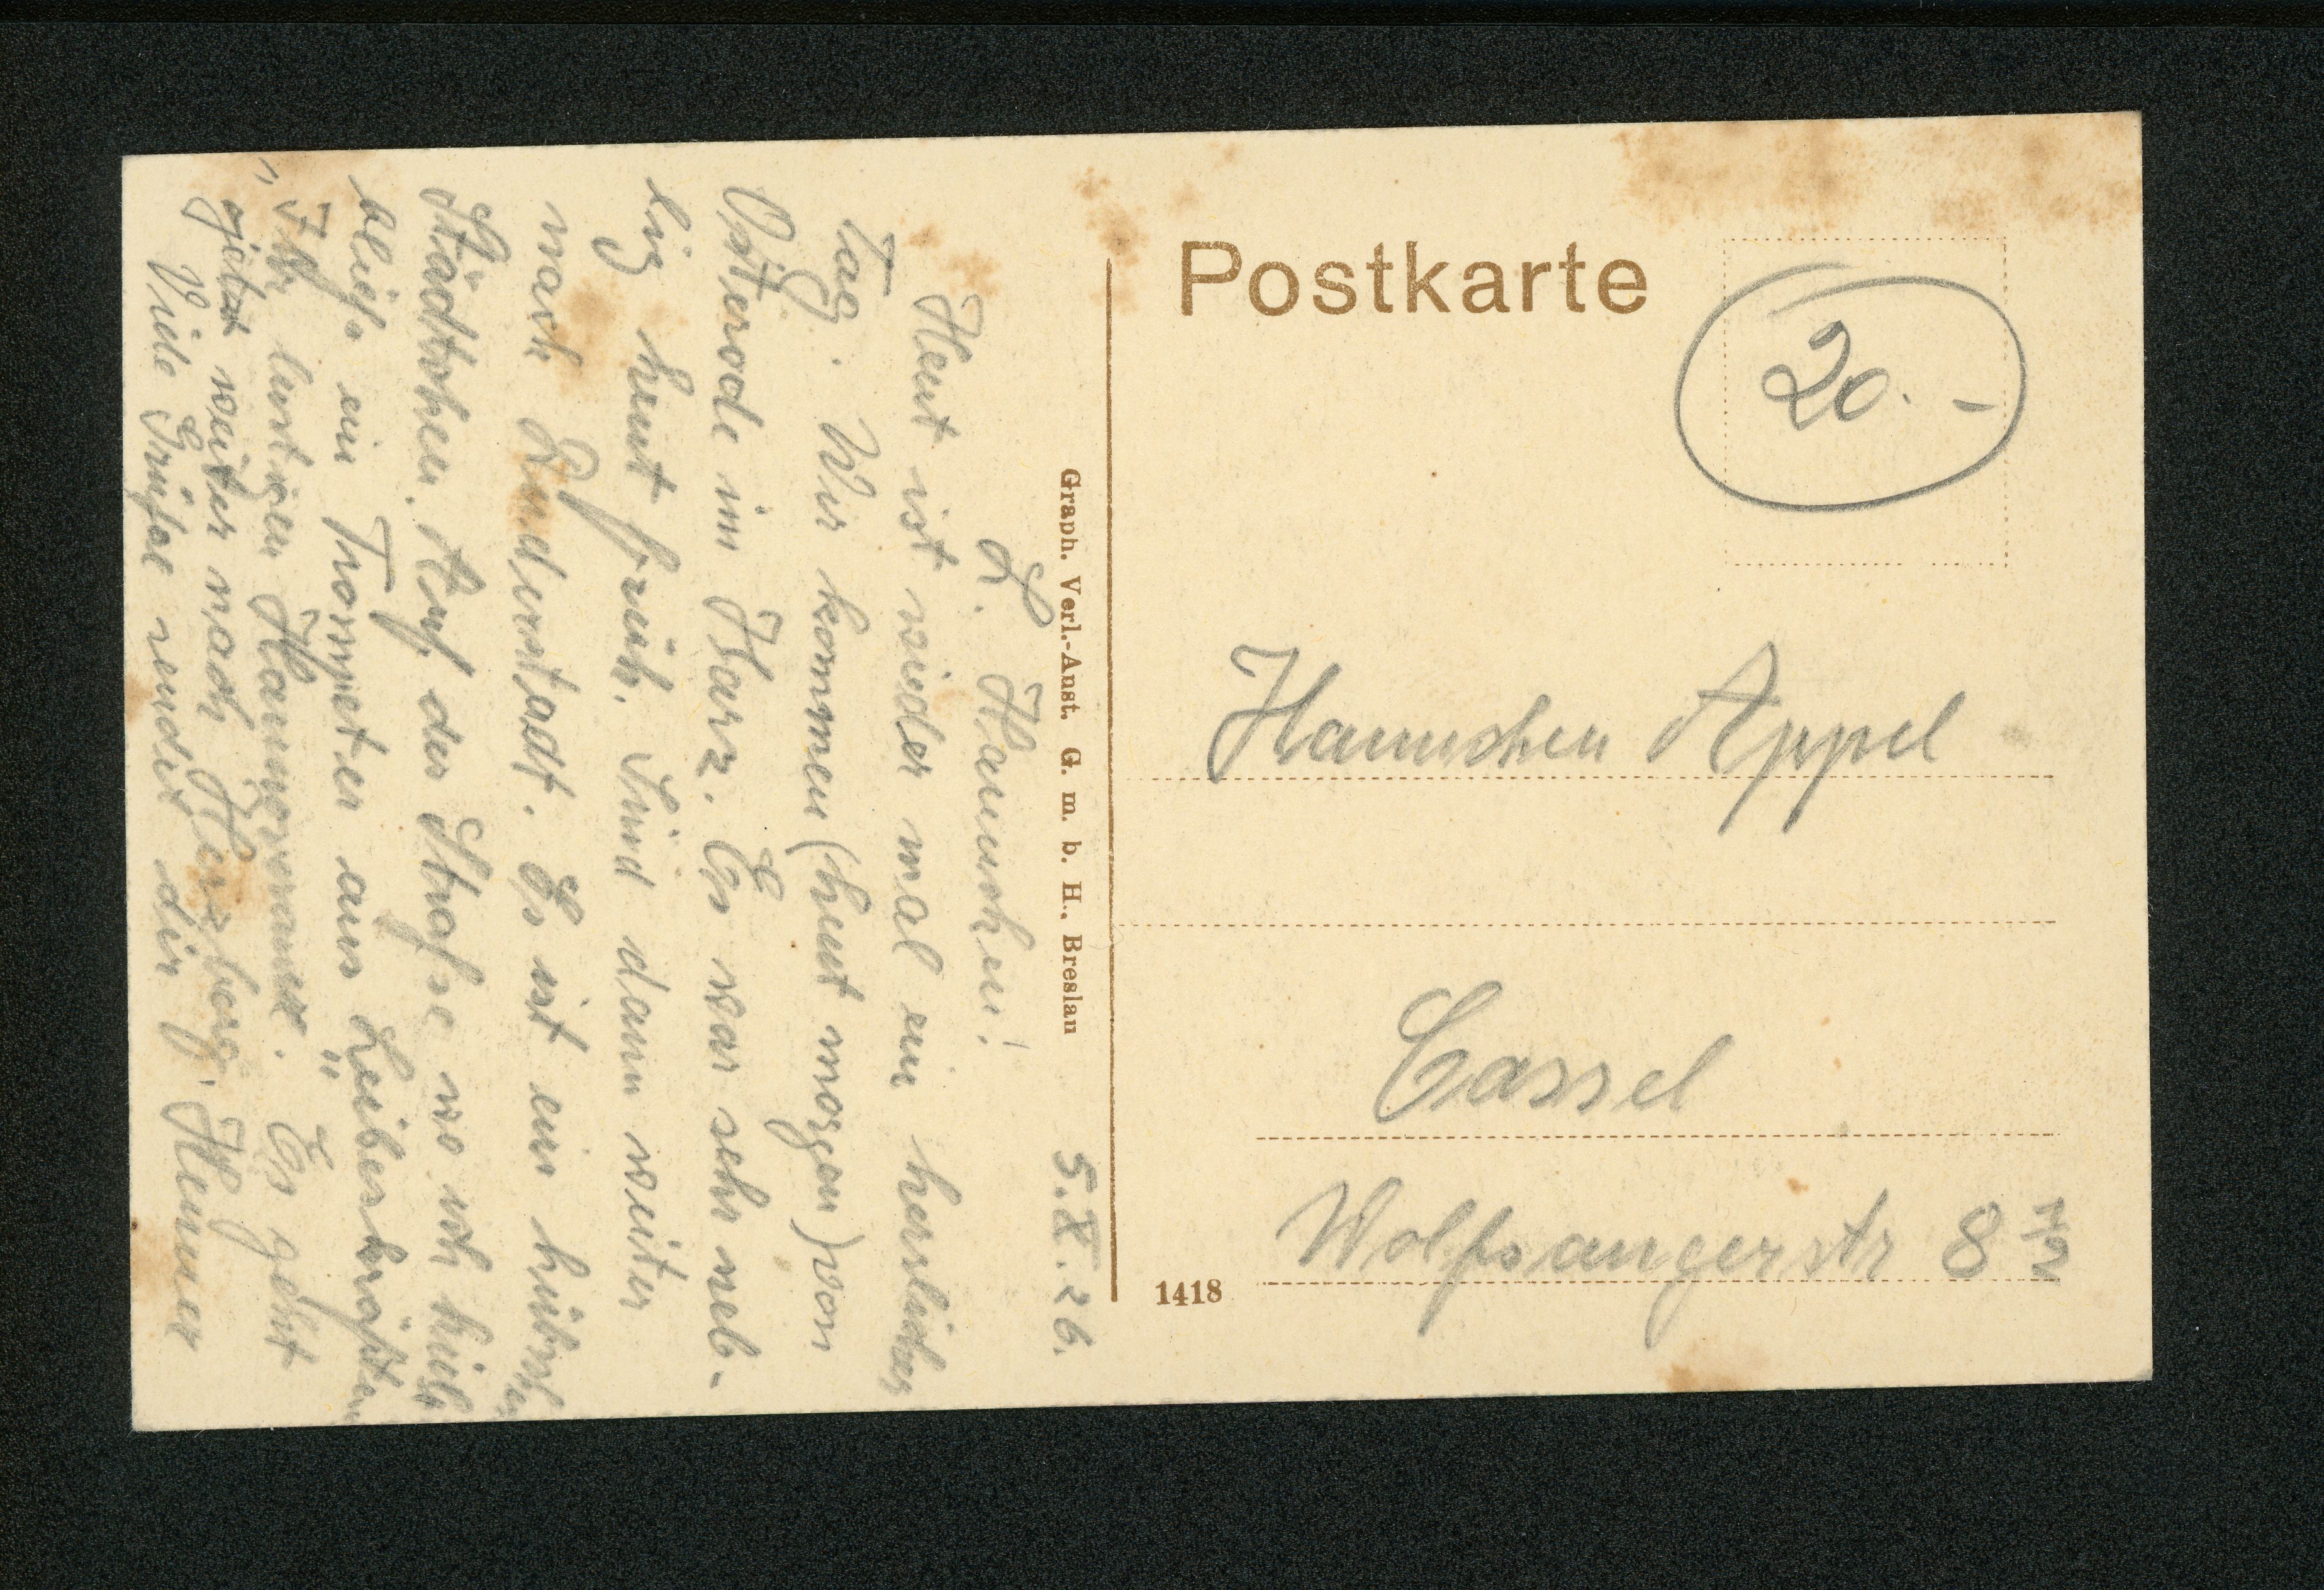 Postkarte
20.-
Hannchen Appel
Cassel
Wolfsangerstr 8
1418
Graph. Verl.-Anst. G. m. b. H., Breslau
5.X.26.
L. Hannchen!
Heut ist wieder mal ein herrlicher
Tag. Wir kommen (heut morgen) von
Osterode im Harz. Es war sehr neb-
lig heut früh. Sind dann weiter
nach Duderstadt. Es ist ein hübsches
Städtchen. Auf der Strafse wo ich hielt
blies ein Trompeter aus Leibeskräften
"Ihr lustigen Hannoveraner". Es geht
jetzt weiter nach Herzberg.
Viele Grüfse sendet dir Henner